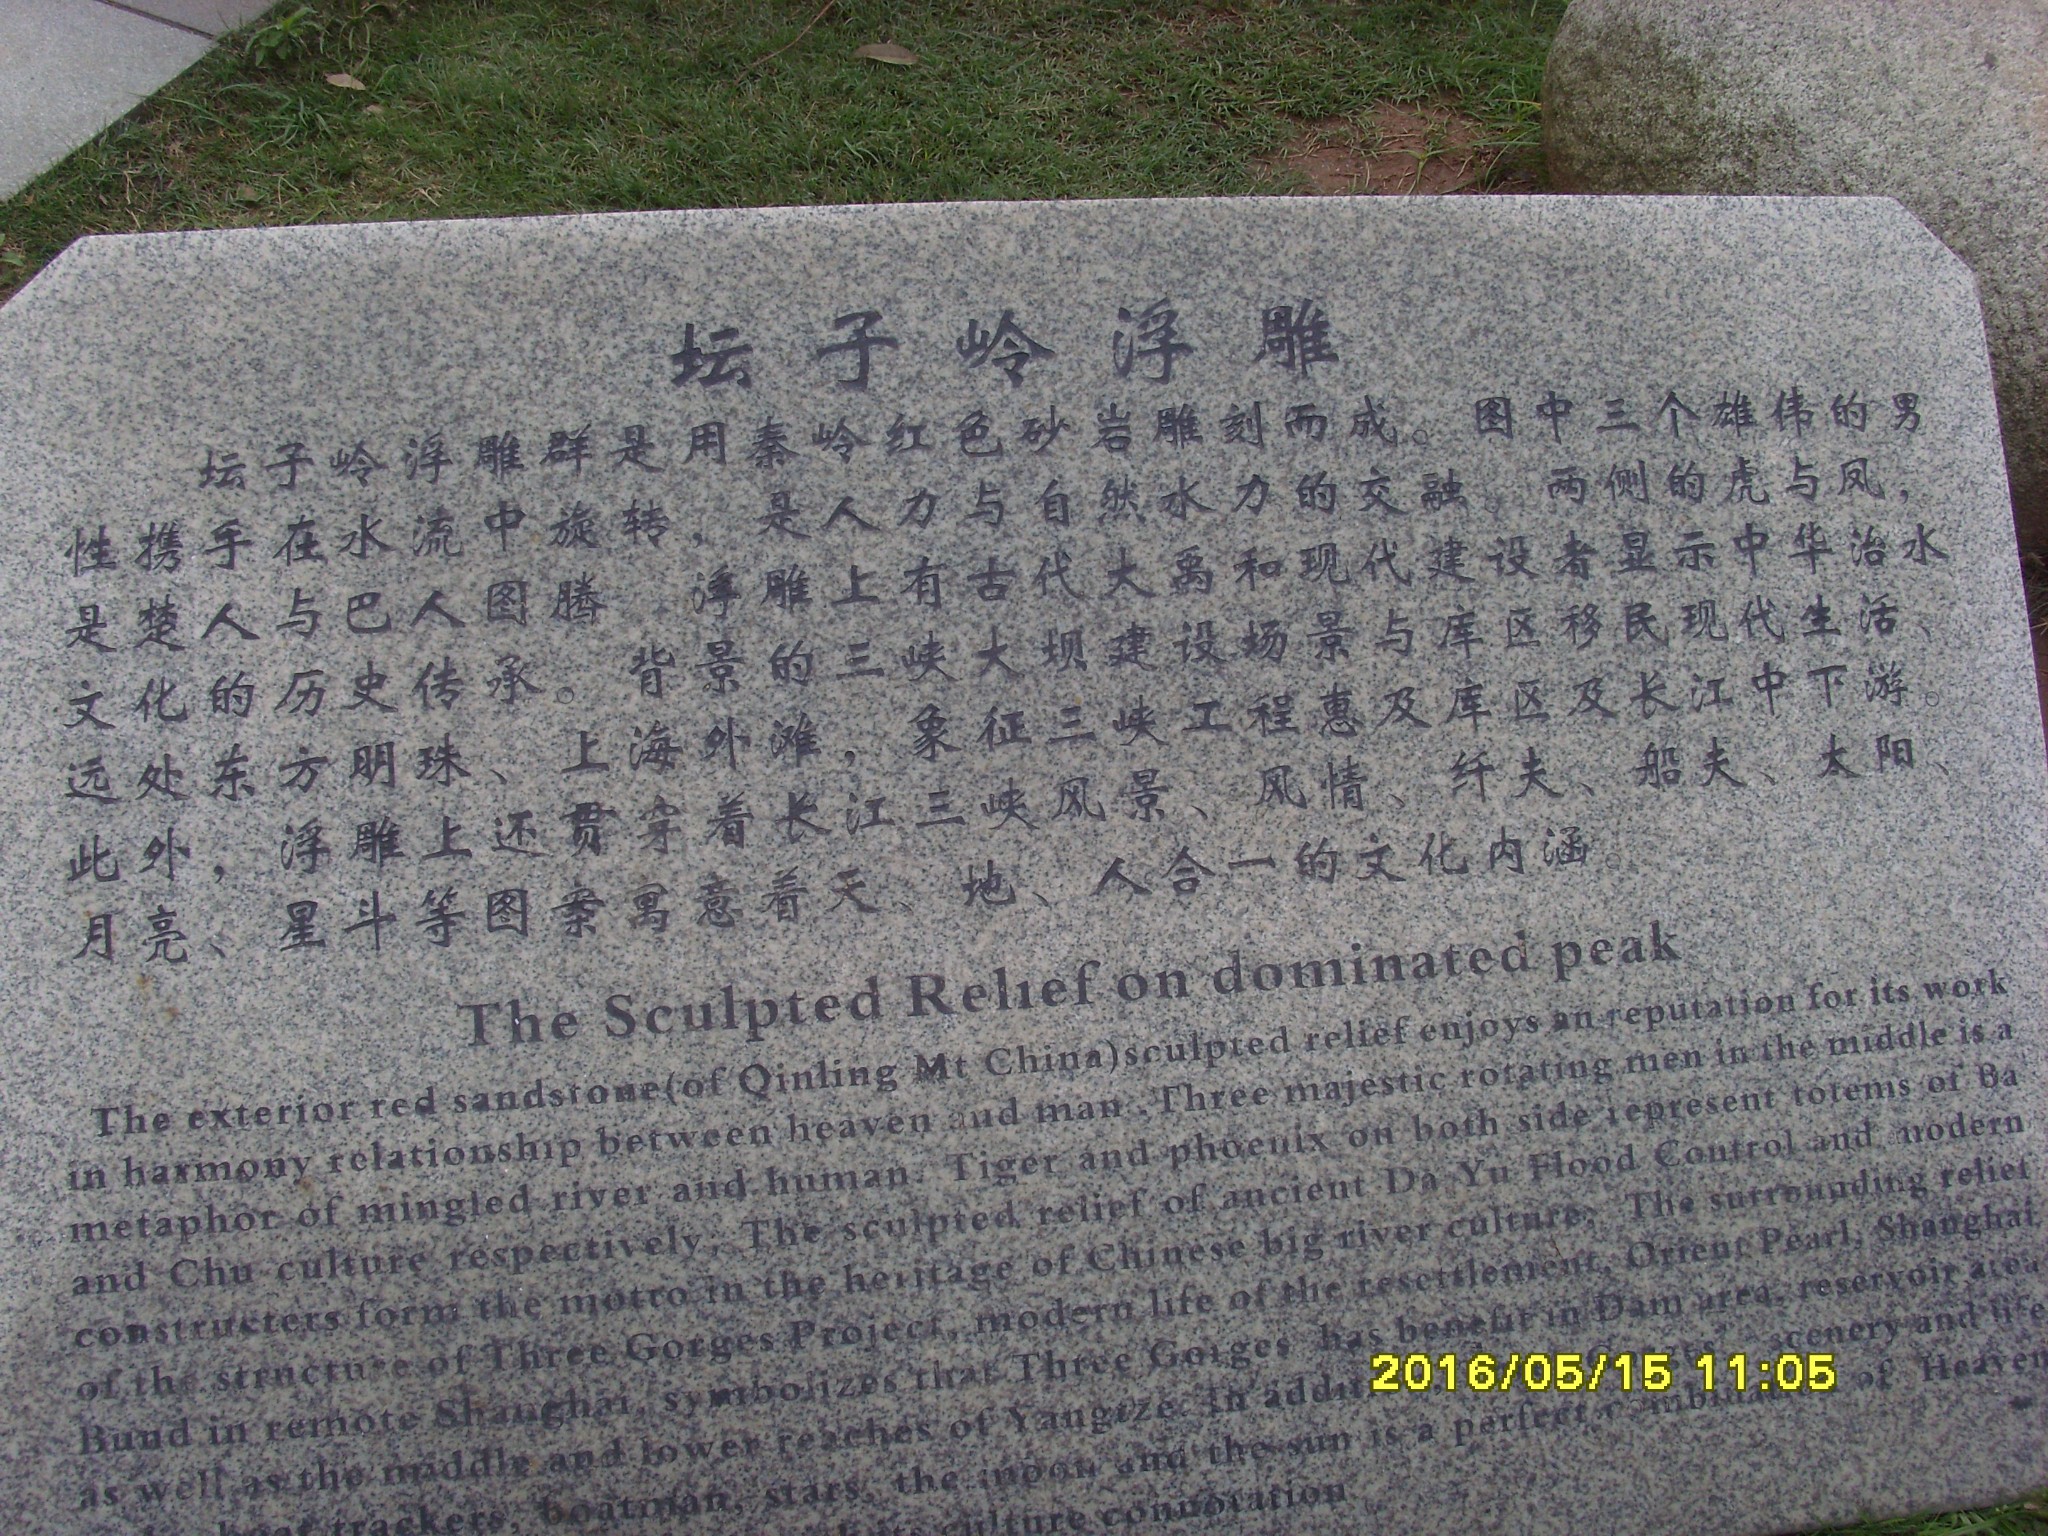 坛子岭浮雕
坛子岭浮雕群是用秦岭红色砂岩雕刻而成。图中三个雄伟的男
性携手在水流中旋转，是人力与自然水力的交融。两侧的虎与凤，
是楚人与巴人图腾 浮雕上有古代大禹和现代建设者显示中华治水
文化的历史传承。背景的三峡大坝建设场景与库区移民现代生活、
远处东方明珠、上海外滩，象征三峡工程惠及库区及长江中下游。
此外，浮雕上还贯穿着长江三峡风景、风情、纤夫、船夫、太阳、
月亮、星斗等图案寓意着天、地、人合一的文化内涵。
The Sculpted Relief on dominated peak
The exterior red sandstone(of Qinling Mt China)sculpted relief enjoys an reputation for its work
in harmony relationship between heaven and man. Three majestic rotating men in the middle is a
metaphor of mingled river and human. Tiger and phoenix on both side represent totems of Ba
and Chu culture respectively, The sculpted relief of ancient Da Yu Flood Control and modern
constructers form the motto in the heritage of Chinese big river culture; The surrounding relief
of the structure of Three Gorges Project, modern life of the resettlement, Orient Pearl, Shanghai
Bund in remote Shanghai, symbolizes that Three Gorges has benefit in Dam area, reservoir area
as well as the middle and lower reaches of Yangtze. In scenery and life
boat trackers, boatman, stars, the moon and the sun is a perfect of Heaven
its culture connotation
2016/05/15 11:05